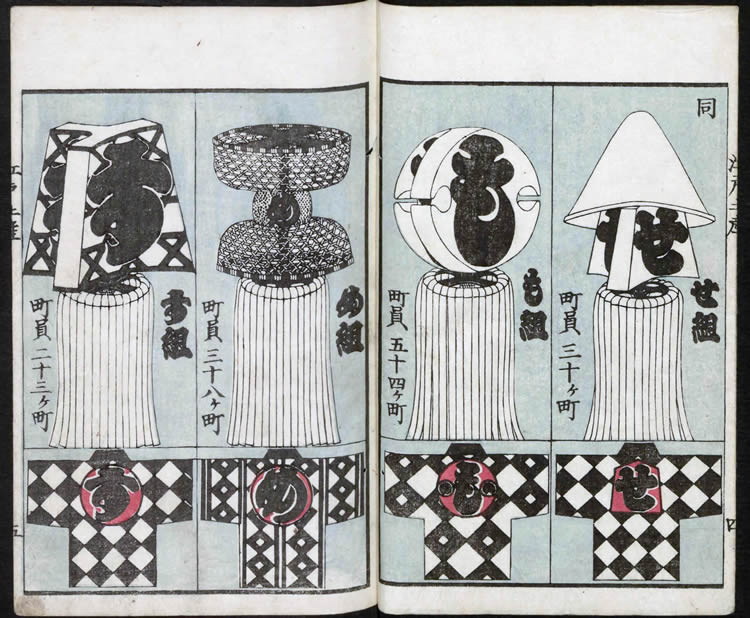 江戸土産
同
せ
せ組
町員三十ヶ町
せ
も
も組
町員五十四ヶ町
も
め
め組
町員三十八ヶ町
め
す
す組
町員二十三ヶ町
す
江戸土産
五